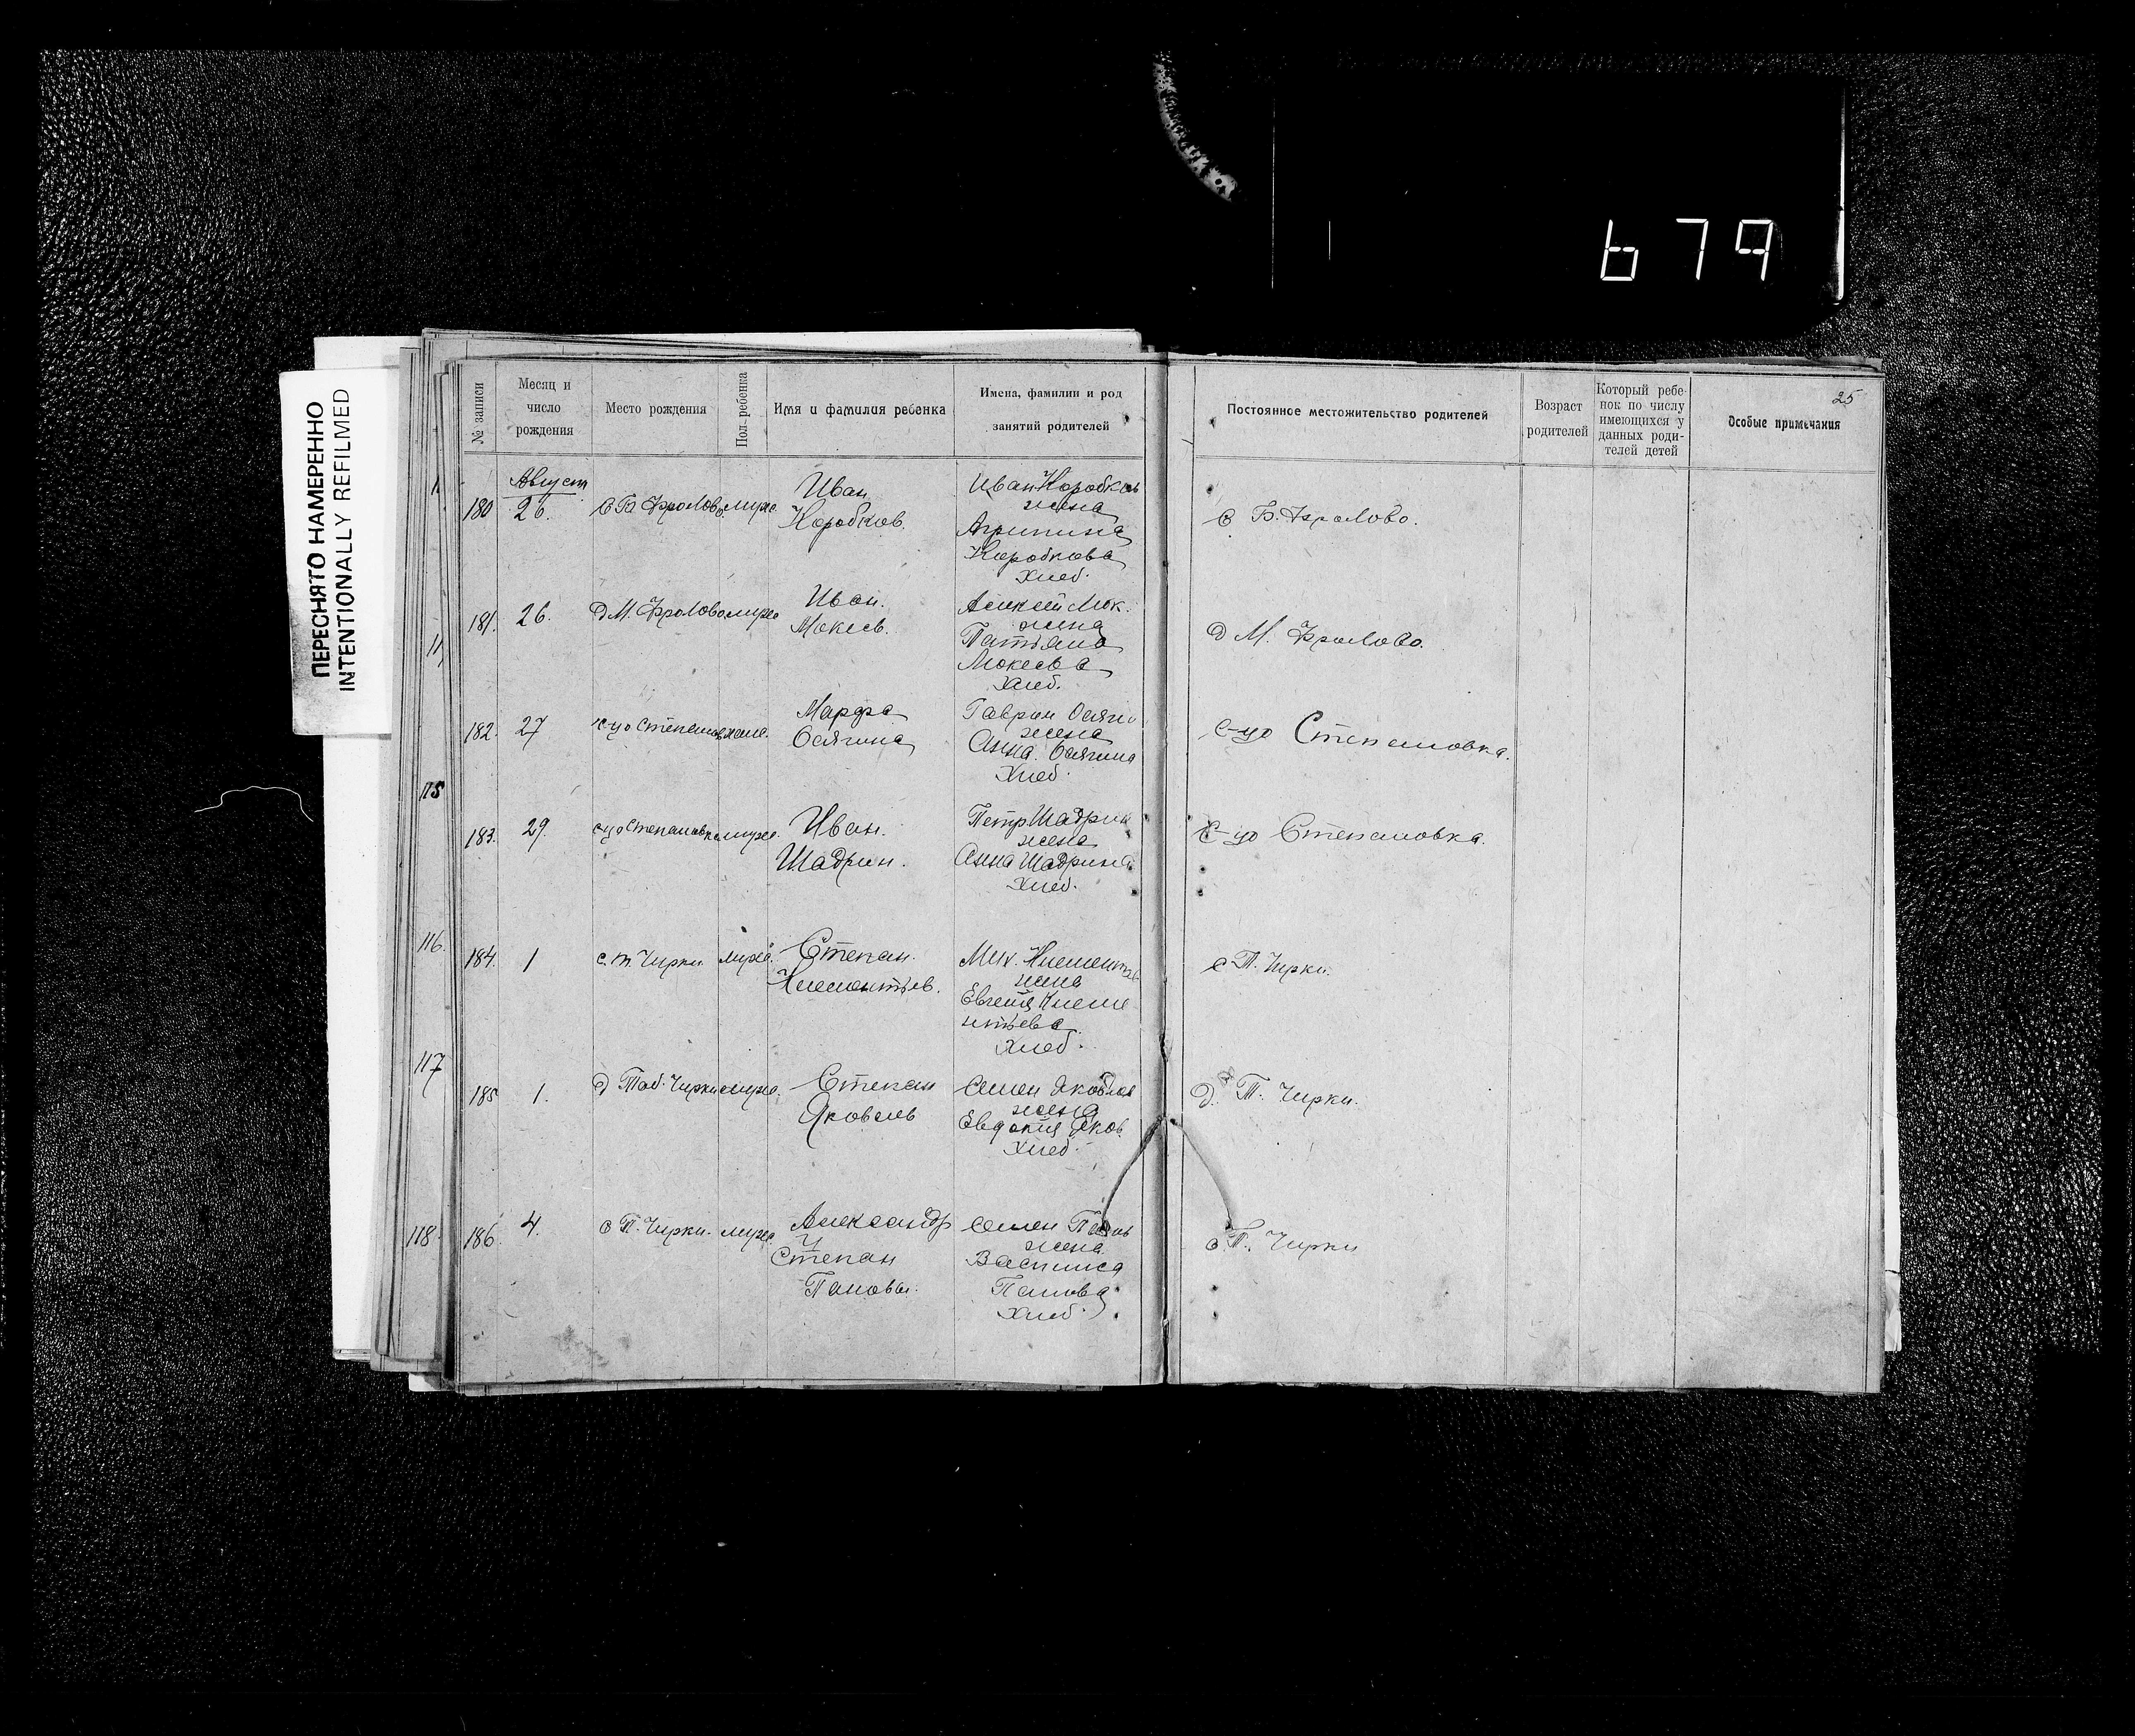 679
ПЕРЕСНЯТО НАМЕРЕННО
INTENTIONALLY REFILMED
№ записи
Месяц и
число
рождения
Место рождения
Пол ребенка
Имя и фамилия ребенка
Имена, фамилии и род
занятий родителей
Постоянное местожительство родителей
Возраст
родителей
Который ребе-
нок по числу
имеющихся у
данных роди-
телей детей
Особые примечания
25
Август
180 26. с Б Фролово. муж. Иван Коробков.
Иван Коробков
жена
Агрипина
Коробкова
Хлеб.
с Б. Фролово.
181. 26. д М. Фролово муж. Иван. Мокеев.
Алексей Мок.
жена
Татьяна
Мокеева
Хлеб.
д М. Фролово.
182. 27 с-цо Степановк жен. Марфа Осягина
Гаврил Осяги
жена
Анна Осягина
Хлеб.
с-цо Степановка.
115
183. 29. с-цо Степановка муж. Иван. Шадрин.
Петр Шадрин
жена
Анна Шадрина
Хлеб.
с-цо Степановка.
116.
184. 1 с. Т Чирки муж. Степан. Клементьев.
Мих. Клементьев
жена
Евгения Клеме
нтьева
Хлеб.
с Т. Чирки.
117
185 1. д Таб. Чирки муж. Степан Яковлев
Семен Яковлев
жена
Евдокия Яков.
Хлеб.
д. Т. Чирки.
118.
186. 4. с Т. Чирки. муж. Александр
и
Степан
Пановы.
Семен Панов
жена
Васшиса
Панова
Хлеб.
с Т. Чирки